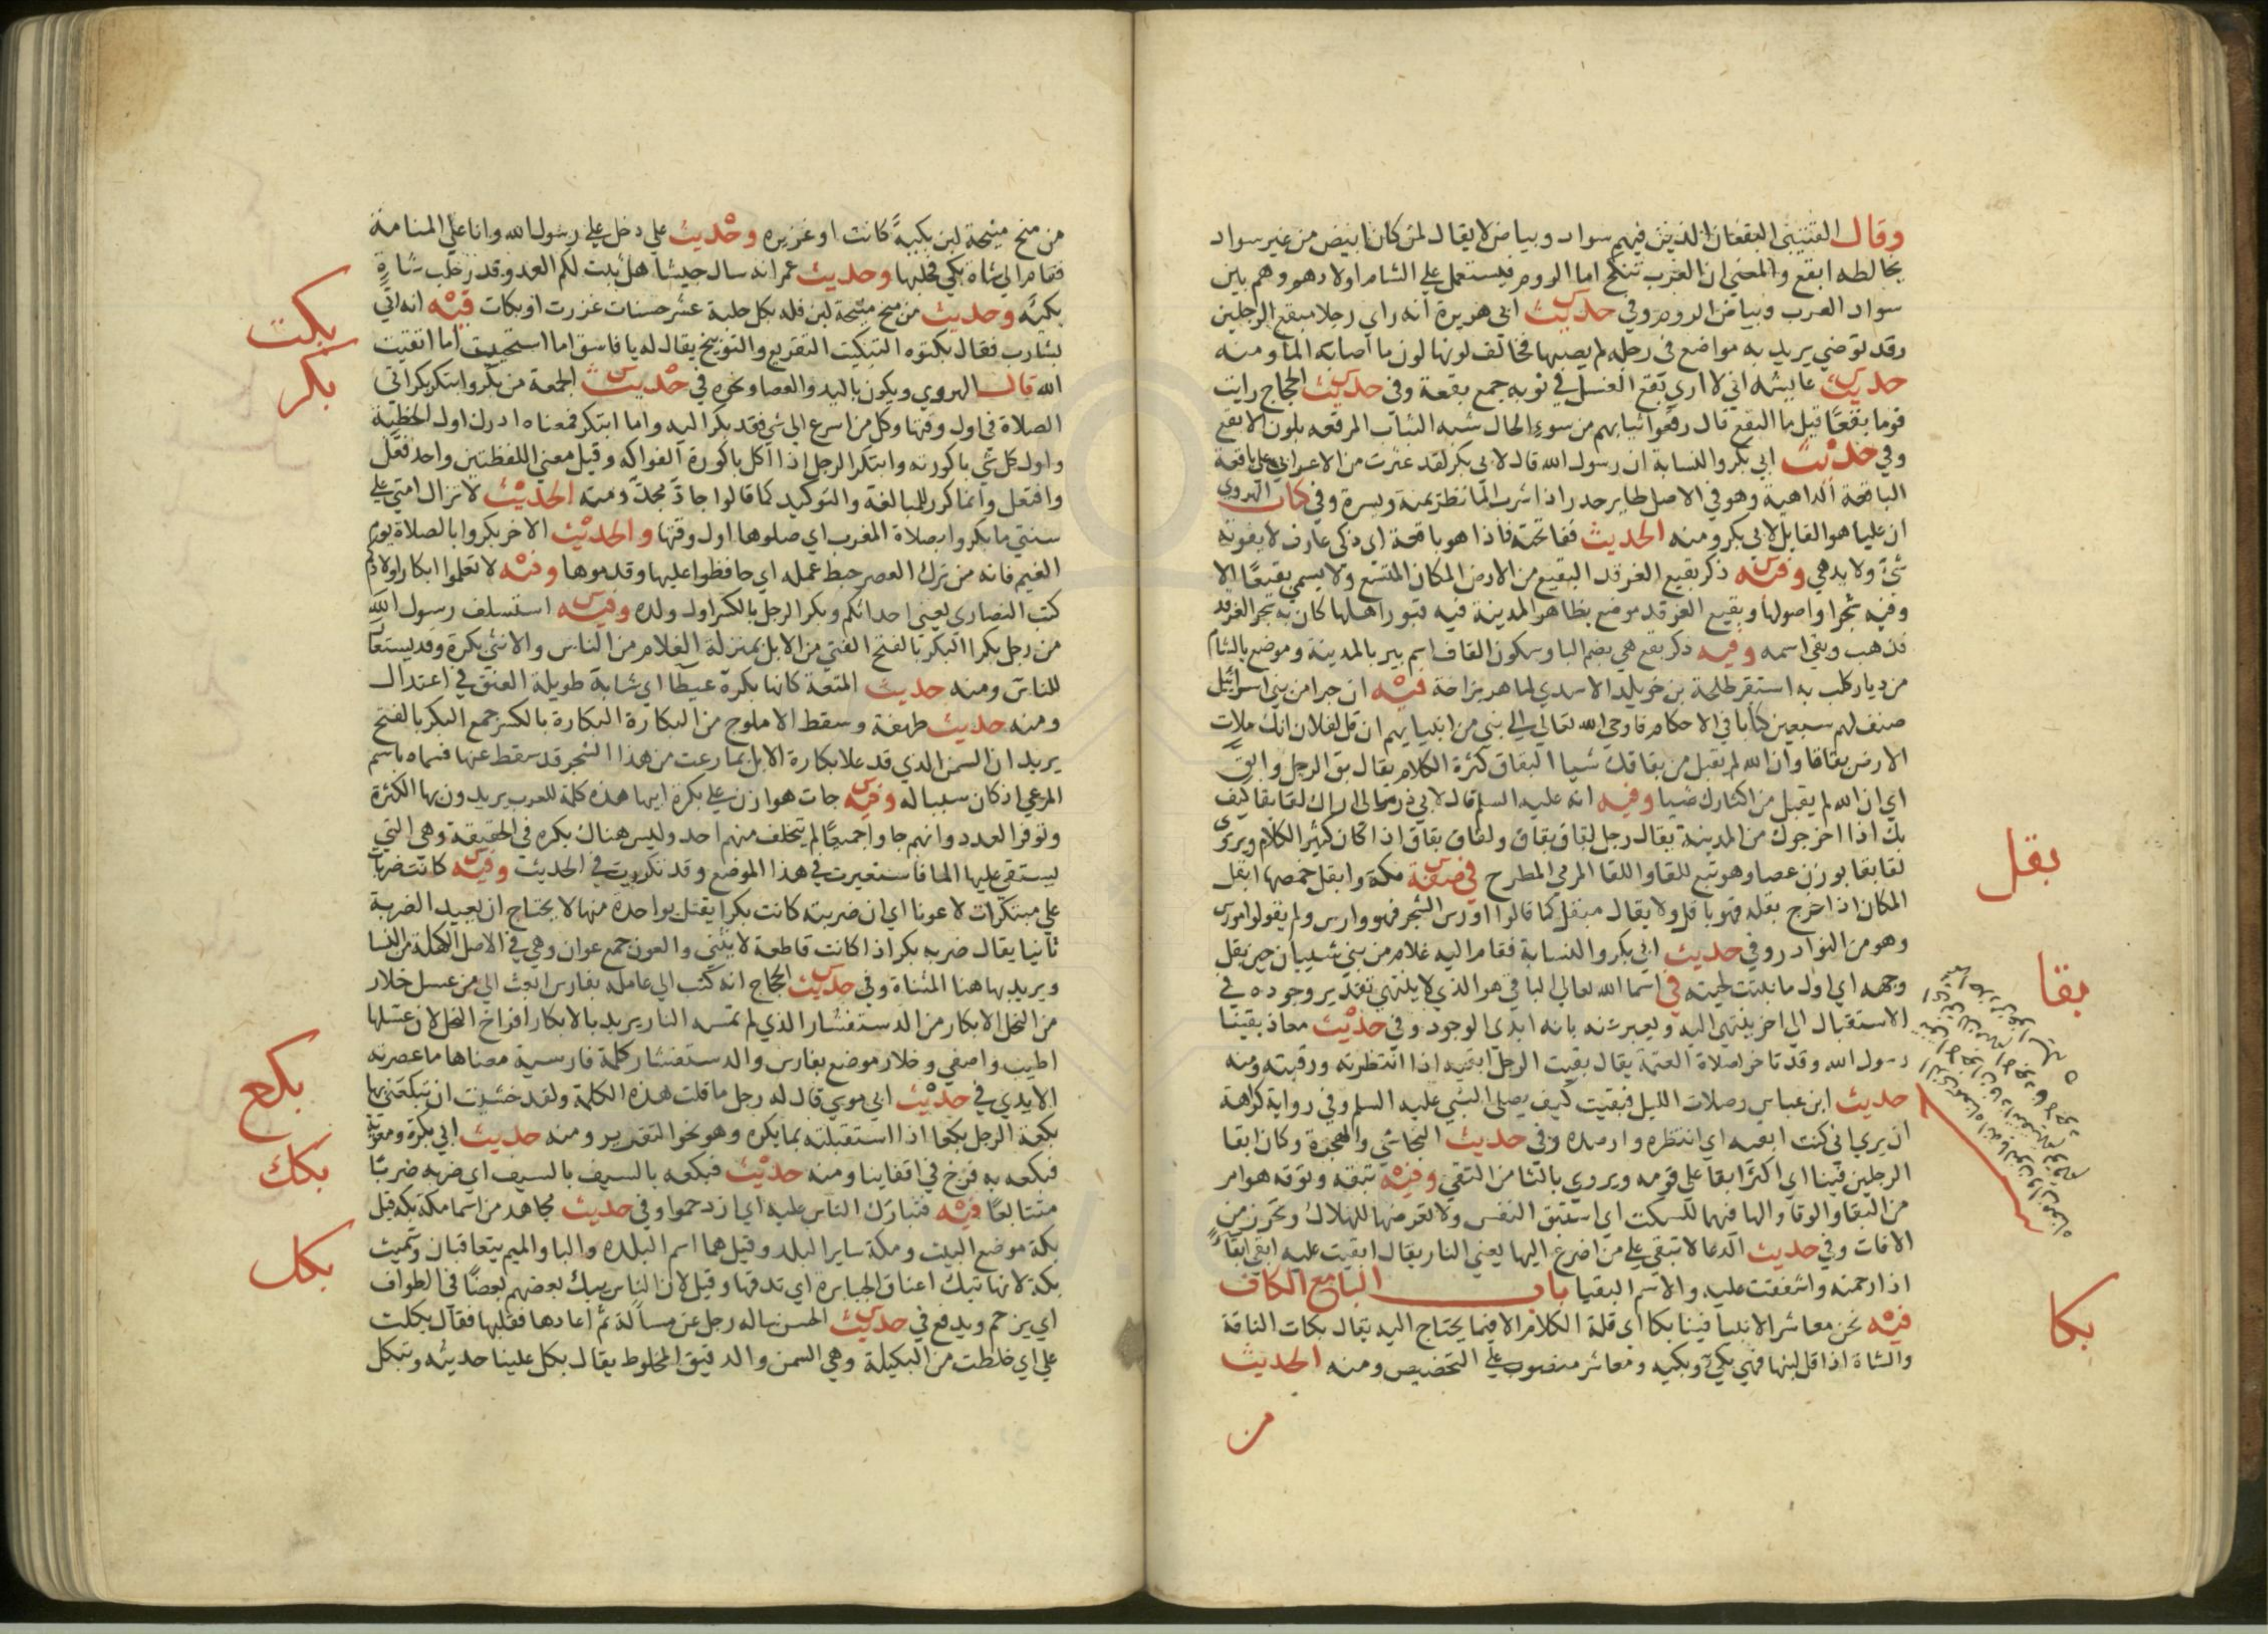 وقال القتيبي البقعان الذين فيهم سواد وبياض لا يقال لمن كان ابيض من غير سواد
يخالطه ابقع والمعني ان العرب تنكح اما الروم فيستعمل علي الشام اولادهم وهم بين
سواد العرب وبياض الروم وفي حديث ابي هريرة انه راي رجلا مبقع الرجلين
وقد توضي يريد به مواضع في رجله لم يصبها فخالف لونها لون ما اصابه الما ومنه
حديث عايشه اني لا اري بقع الغسل في ثوبه جمع بقعة وفي حديث الحجاج رايت
قوما بقعا قيل ما البقع قال رقعوا ثيابهم من سوء الحال شبه الثياب المرقعه بلون الابقع
وفي حديث ابي بكر والنسابة ان رسول الله قال لابي بكر لقد عثرت من الاعرابي علي باقعة
الباقعة الداهية وهو في الاصل طاير حدر اذا شرب الما نظر يمنة ويسرة وفي كتاب الهروي
ان عليا هو القايل لابي بكر ومنه الحديث ففاتحته فاذا هو باقعة اي ذكي عارف لا يفوته
شيء ولا يدهي وفيه ذكر بقيع الغرقد البقيع من الارض المكان المتسع ولا يسمي بقيعا الا
وفيه شجر او اصولها وبقيع الغرقد موضع بظاهر المدينة فيه قبور اهلها كان به شجر الغرقد
فذهب وبقي اسمه وفيه ذكر بقع هي بضم البا وسكون القاف اسم بير بالمدينة وموضع بالشام
من ديار كلب به استقر طلحة بن خويلد الاسدي لما هرب بزاخة فيه ان حبرا من بني اسرائيل
صنف لهم سبعين كتابا في الاحكام فاوحي الله تعالي الي نبي من انبيايهم ان قل لفلان انك ملات
الارض بقاقا وان الله لم يقبل من بقاقك شيا البقاق كثرة الكلام يقال بق الرجل وابق
اي ان الله لم يقبل من اكثارك شيا وفيه انه عليه السلم قال لابي ذر مالي اراك لقا بقا كيف
بك اذا اخرجوك من المدينة يقال رجل لقاق بقاق ولقاق بقاق اذا كان كثير الكلام ويروي
لقا بقا بوزن عصا وهو تبع للقا واللقا المرمي المطرح في صفة مكة وابقل حمضها ابقل
المكان اذا خرج بقله فهو باقل ولا يقال مبقل كما قالوا اورس الشجر فهو وارس ولم يقولوا مورس
وهو من النوادر وفي حديث ابي بكر والنسابة فقام اليه غلام من بني شيبان حين بقل
وجهه اي اول ما نبتت لحيته في اسما الله تعالي الباقي هو الذي لا ينتهي تقدير وجوده في
الاستقبال الي اخر ينتهي اليه ويعبر عنه بانه ابدي الوجود وفي حديث معاذ بقينا
رسول الله وقد تاخر لصلاة العتمة يقال بقيت الرجل ابقيه اذا انتظرته ورقبته ومنه
حديث ابن عباس وصلات الليل فبقيت كيف يصلي النبي عليه السلم وفي رواية كراهة
ان يري اني كنت ابقيه اي انتظره وارصده وفي حديث النجاشي والهجرة وكان ابقا
الرجلين فينا اي اكثر ابقا علي قومه ويروي بالتا من التقي وفيه تبقه وتوقه هو امر
من البقا والوقا والها فيهما للسكت اي استبق النفس ولا تعرضها للهلاك وتحرز من
الافات وفي حديث الدعا لا تبقي علي من اضرع اليها يعني النار يقال ابقيت عليه ابقي ابقاء
اذا رحمته واشفقت عليه والاسم البقيا باب البا مع الكاف
فيه نحن معاشر الانبيا فينا بكا اي قلة الكلام الا فيما يحتاج اليه يقال بكات الناقة
والشاة اذا قل لبنها فهي بكي وبكيه ومعاشر منصوب علي التخصيص ومنه الحديث
من
بقل
بقا
بكا
من منح منيحة لبن بكية كانت او غزيره وحديث علي دخل علي رسول الله وانا علي المنامة
فقام الي شاة بكي فحلبها وحديث عمر انه سال جيشا هل ثبت لكم العدو قدر حلب شاة
بكية وحديث من منح منيحة لبن فله بكل حلبة عشر حسنات غزرت او بكات فيه انه اتي
بشارب فقال بكتوه التبكيت التقريع والتوبيخ يقال له يا فاسق اما استحييت اما اتقيت
الله قال الهروي ويكون باليد والعصا ونحوه في حديث الجمعة من بكر وابتكر بكر اتي
الصلاة في اول وقتها وكل من اسرع الي شي فقد بكر اليه واما ابتكر فمعناه ادرك اول الخطبة
واول كل شي باكورته وابتكر الرجل اذا اكل باكورة الفواكه وقيل معني اللفظتين واحد فعل
وافتعل وانما كرر للمبالغة والتوكيد كما قالوا جاد مجد ومنه الحديث لا تزال امتي علي
سنتي ما بكروا بصلاة المغرب اي صلوها اول وقتها والحديث الاخر بكروا بالصلاة يوم
الغيم فانه من ترك العصر حبط عمله اي حافظوا عليها وقدموها وفيه لا تعلموا ابكار اولادكم
كتب النصاري يعني احداثكم وبكر الرجل بالكسر اول ولده وفيه استسلف رسول الله
من رجل بكرا البكر بالفتح الفتي من الابل بمنزلة الغلام من الناس والانثي بكرة وقد يستعار
للناس ومنه حديث المتعة كانها بكرة عيطا اي شابة طويلة العنق في اعتدال
ومنه حديث طهفة وسقط الاملوج من البكارة البكارة بالكسر جمع البكر بالفتح
يريد ان السمن الذي قد علا بكارة الابل بما رعت من هذا الشجر قد سقط عنها فسماه باسم
المرعي اذ كان سببا له وفيه جات هوازن علي بكرة ابيها هذه كلمة للعرب يريدون بها الكثرة
وتوفر العدد وانهم جاوا جميعا لم يتخلف منهم احد وليس هناك بكره في الحقيقة وهي التي
يستقي عليها الما فاستعيرت في هذا الموضع وقد تكررت في الحديث وفيه كانت ضربات
علي مبتكرات لا عونا اي ان ضربته كانت بكرا يقتل بواحدة منها لا يحتاج ان يعيد الضربة
ثانيا يقال ضربه بكر اذا كانت قاطعة لا تثني والعون جمع عوان وهي في الاصل الكهلة من النسا
ويريد بها هنا المثناة وفي حديث الحجاج انه كتب الي عامله بفارس ابعث الي من عسل خلار
من النحل الابكار من الدستفشار الذي لم تمسه النار يريد بالابكار افراخ النحل لان عسلها
اطيب واصفي وخلار موضع بفارس والدستفشار كلمة فارسية معناها ما عصرته
الايدي في حديث ابي موسي قال له رجل ما قلت هذه الكلمة ولقد خشيت ان تبكعني بها
بكعت الرجل بكعا اذا استقبلته بما يكره وهو نحو التقريع ومنه حديث ابي بكرة ومعوية
فبكعه به فزخ في اقفاينا ومنه حديث فبكعه بالسيف بالسيف اي ضربه ضربا
متتابعا فيه فتباك الناس عليه اي ازدحموا وفي حديث مجاهد من اسما مكة بكه قيل
بكة موضع البيت ومكة ساير البلد وقيل هما اسم البلده والبا والميم يتعاقبان وسميت
بكة لانها تبك اعناق الجبابرة اي تدقها وقيل لان الناس يبك بعضهم بعضا في الطواف
اي يزحم ويدفع في حديث الحسن ساله رجل عن مسالة ثم اعادها فقلبها فقال بكلت
علي اي خلطت من البكيلة وهي السمن والدقيق المخلوط يقال بكل علينا حديثه وتبكل
بكت
بكر
بكع
بكك
بكل